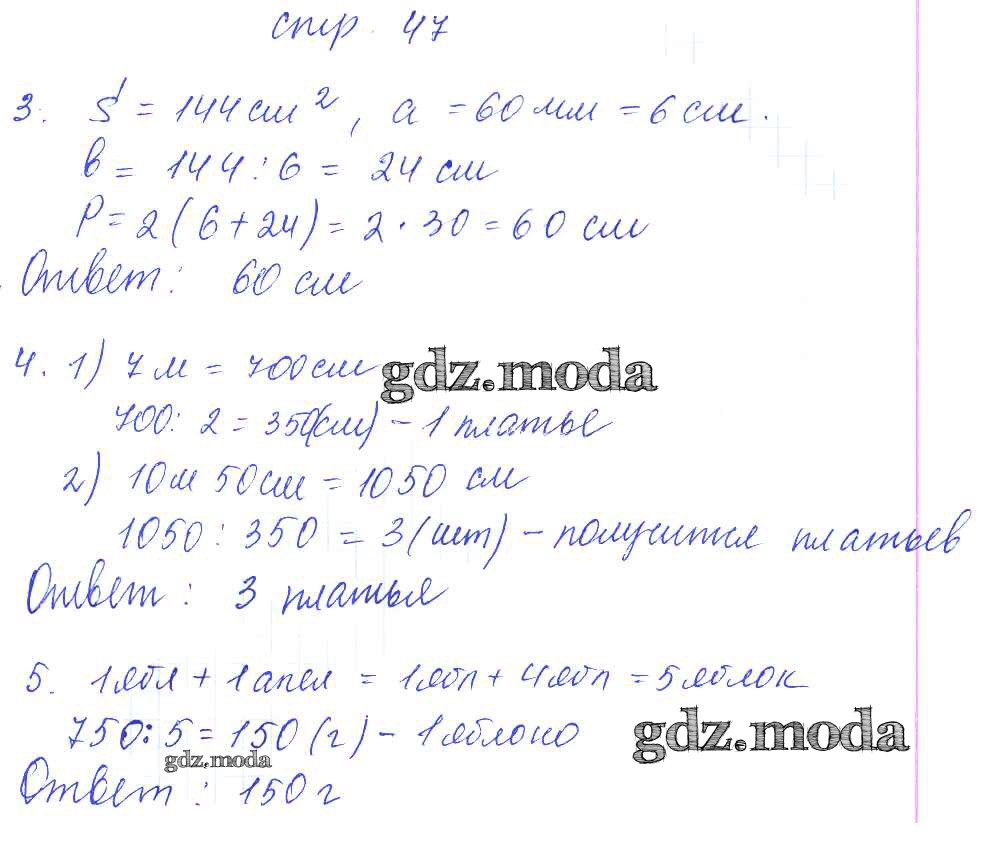 стр. 47
3. S = 144 см², а = 60 мм = 6 см.
в = 144 : 6 = 24 см
P = 2 (6 + 24) = 2 · 30 = 60 см
Ответ: 60 см
4. 1) 7 м = 700 см gdz.moda
700 : 2 = 350 (см) – 1 платье
2) 10 м 50 см = 1050 см
1050 : 350 = 3 (шт) – получится платьев
Ответ: 3 платья
5. 1 ябл + 1 апел = 1 ябл + 4 ябл = 5 яблок
750 : 5 = 150 (г) – 1 яблоко gdz.moda
gdz.moda
Ответ: 150 г